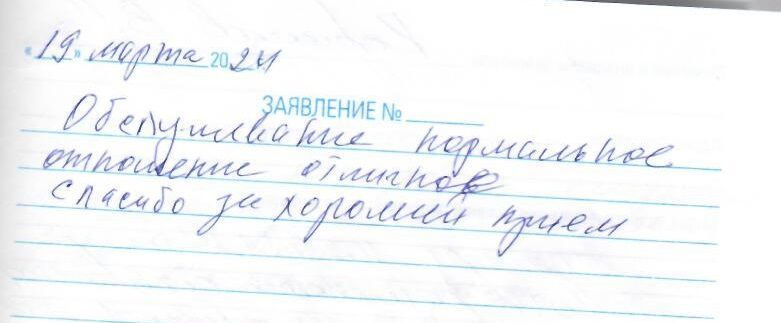 «19» марта 2024
ЗАЯВЛЕНИЕ №
Обслуживание нормальное
отношение отличное
спасибо за хороший прием